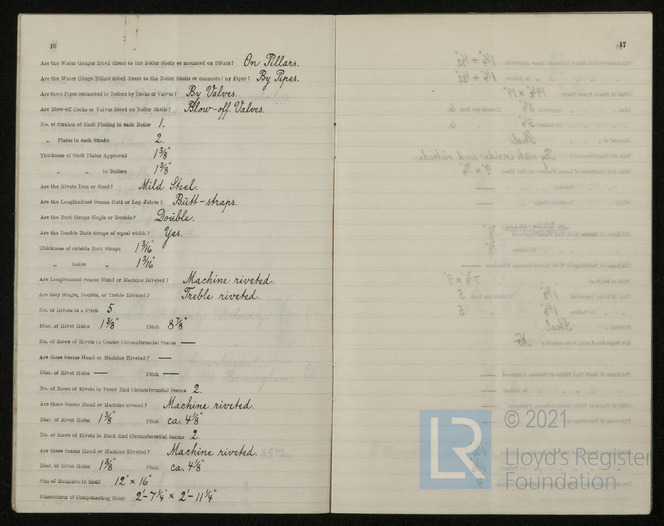 16
Are the Water Gauges fitted direct to the Boiler Shells or mounted on Pillars? On Pillars.
Are the Water Gauge Pillars fitted direct to the Boiler Shells or connected by Pipes? By Pipes.
Are these Pipes connected to Boilers by Cocks or Valves? By Valves.
Are Blow-off Cocks or Valves fitted on Boiler Shells? Blow-off Valves.
No. of Strakes of Shell Plating in each Boiler 1.
„ Plates in each Strake 2.
Thickness of Shell Plates Approved 1 3/8"
„ „ in Boilers 1 3/8"
Are the Rivets Iron or Steel? Mild Steel.
Are the Longitudinal Seams Butt or Lap Joints? Butt-straps.
Are the Butt Straps Single or Double? Double.
Are the Double Butt Straps of equal width? Yes.
Thickness of outside Butt Straps 1 3/16"
„ inside „ 1 3/16"
Are Longitudinal Seams Hand or Machine Riveted? Machine riveted.
Are they Single, Double, or Treble Riveted? Treble riveted.
No. of Rivets in a Pitch 5
Diar. of Rivet Holes 1 3/8" Pitch 8 7/8"
No. of Rows of Rivets in Centre Circumferential Seams —
Are these Seams Hand or Machine Riveted? —
Diar. of Rivet Holes — Pitch —
No. of Rows of Rivets in Front End Circumferential Seams 2.
Are these Seams Hand or Machine riveted? Machine riveted.
Diar. of Rivet Holes 1 3/8" Pitch ca. 4 1/8"
No. of Rows of Rivets in Back End Circumferential Seams 2.
Are these Seams Hand or Machine Riveted? Machine riveted.
Diar. of Rivet Holes 1 3/8" Pitch ca. 4 1/8"
Size of Manholes in Shell 12" × 16"
Dimensions of Compensating Rings 2'-7 1/4" × 2'-11 1/4"
17
© 2021
LR
Lloyd's Register
Foundation